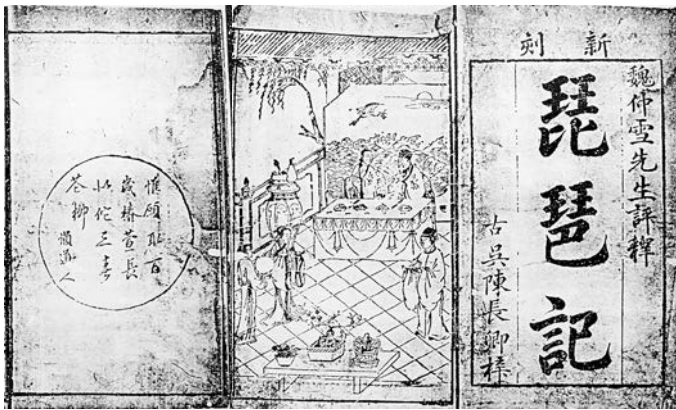 新刻
魏仲雪先生評釋
琵琶記
古吳陳長卿梓
惟願取百
歲椿萱長
似他三春
花柳
懶道人